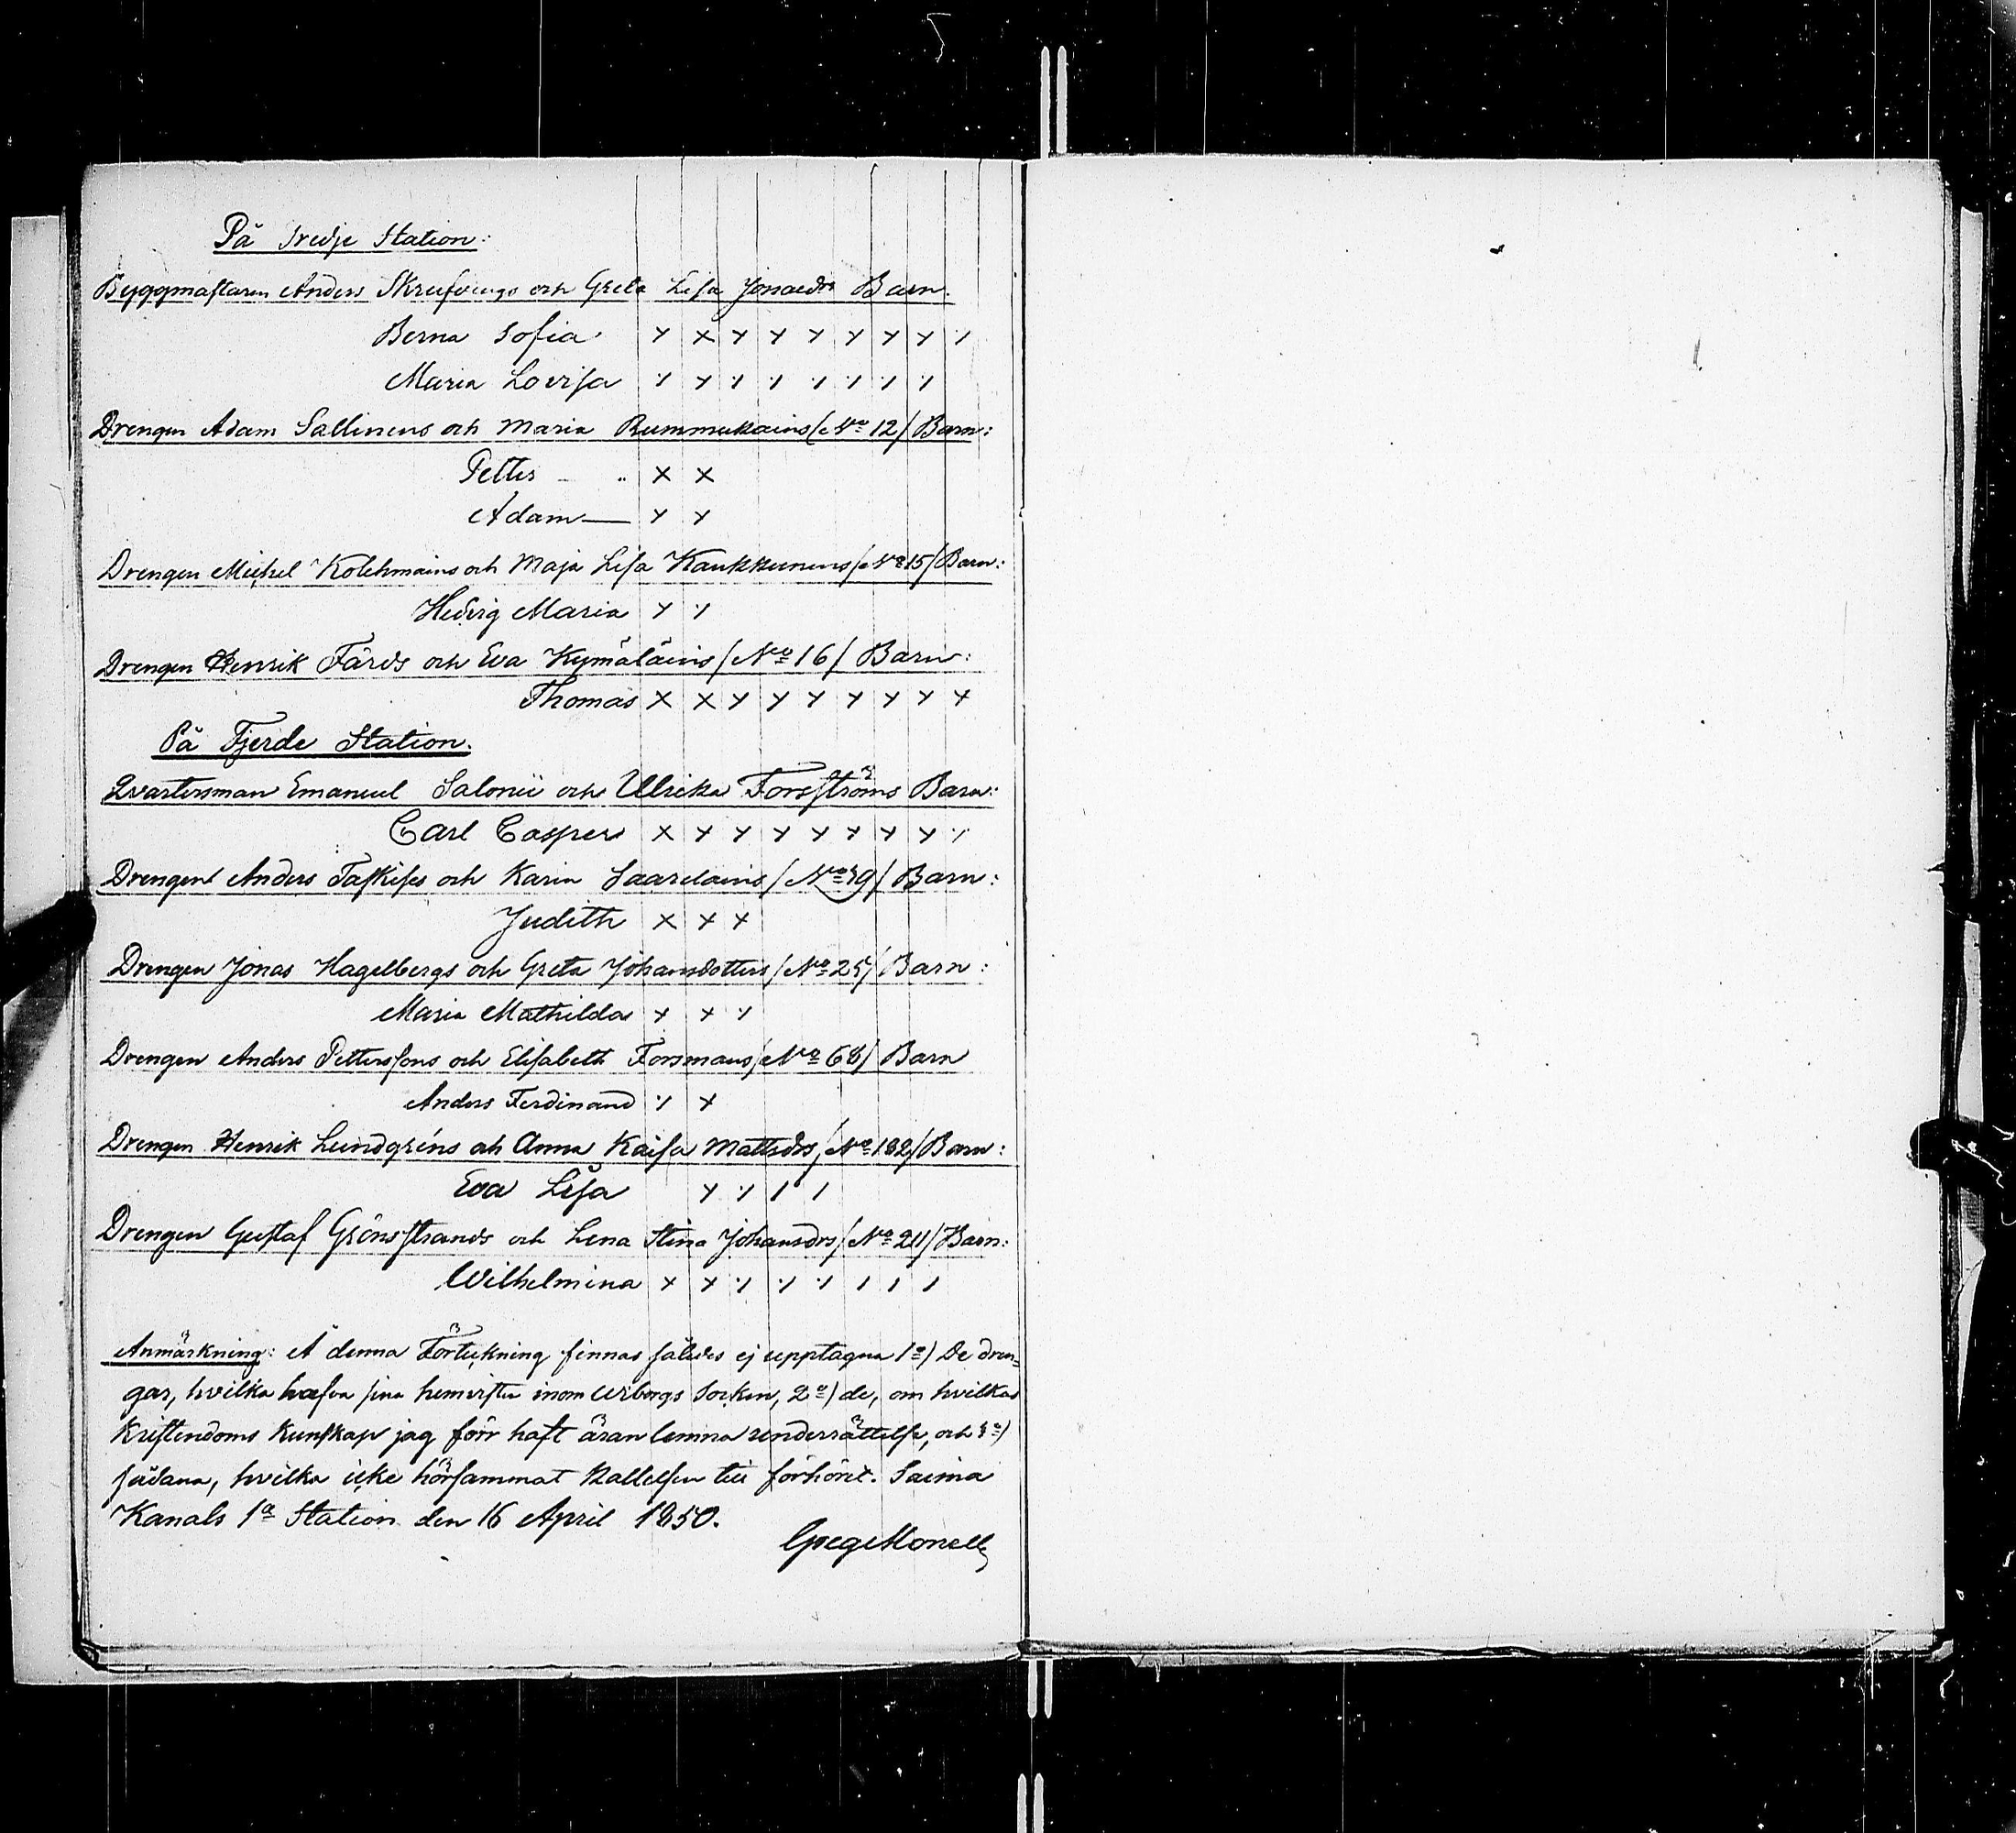 På Tredje Station:
Byggmästaren Anders Skrufvings och Greta Lisa Jonaedrs Barn.
Berna Sofia
Maria Lovisa
Drengen Adam Sallinens och Maria Rummukains /No 12/ Barn:
Petter
Adam
Drengen Michel Kolehmains och Maja Lisa Kaukkunens /No 15/ Barn:
Hedvig Maria
Drengen Henrik Färds och Eva Kymäläins /No 16/ Barn:
Thomas
På Fjerde Station.
Qvartersman Emanuel Salonii och Ulrika Forsströms Barn:
Carl Casper
Drengen Anders Taskises och Karin Saarelains /No 39/ Barn:
Judith
Drengen Jonas Hagelbergs och Greta Johansdotters /No 25/ Barn:
Maria Mathilda
Drengen Anders Petterssons och Elisabeth Forsmans /No 68/ Barn
Anders Ferdinand
Drengen Henrik Lundgréns och Anna Kaisa Mattsdrs /No 182/ Barn:
Eva Lisa
Drengen Gustaf Grönstrands och Lena Stina Johansdrs /No 211/ Barn:
Wilhelmina
Anmärkning: Å denna Förtekning finnas således ej upptagna 1o) De dren=
gar, hvilka hafva sina hemvister inom Wiborgs Socken, 2o) de, om hvilkas
Kristendoms Kunskap jag förr haft äran lemna underrättelse, och 3o)
sådana, hvilka icke hörsammat kallelsen till förhöret. Saima
Kanals 1a Station den 16 April 1850.